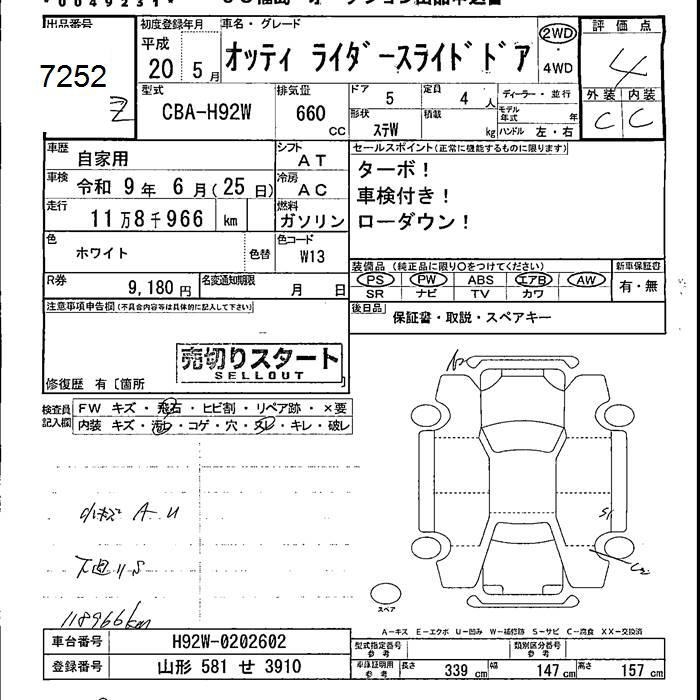 *0049231*
出品番号
7252
初度登録年月
平成
20 5月
車名・グレード
オッティ ライダースライドドア
2WD
・
4WD
評価点
4
外装 内装
C C
型式
CBA-H92W
排気量
660 CC
ドア
5
定員
4 人
ディーラー・並行
形状
ステW
積載
kg
モデル年式 年
ハンドル 左・右
車歴
自家用
シフト
AT
車検
令和 9年 6月(25日)
冷房
AC
走行
11万8千966 km
燃料
ガソリン
色
ホワイト
色替
色コード
W13
R券
9,180円
名変通知期限
月 日
セールスポイント(正常に機能するものに限ります)
ターボ!
車検付き!
ローダウン!
装備品 (純正品に限り○をつけてください)
PS PW ABS エアB AW
SR ナビ TV カワ
新車保証書
有・無
後日品
保証書・取説・スペアキー
注意事項申告欄(不具合内容等は具体的に記入して下さい)
売切りスタート
SELLOUT
修復歴 有〔箇所 〕
検査員記入欄
FW キズ・飛石・ヒビ割・リペア跡・×要
内装 キズ・汚れ・コゲ・穴・スレ・キレ・破レ
小キズ A U
下廻りS
118966km
スペア
A-キズ E-エクボ U-凹み W-補修跡 S-サビ C-腐食 XX-交換済
車台番号
H92W-0202602
登録番号
山形 581 せ 3910
型式指定番号
参考
類別区分番号
参考
車庫証明用
参考
長さ 339 cm
幅 147 cm
高さ 157 cm